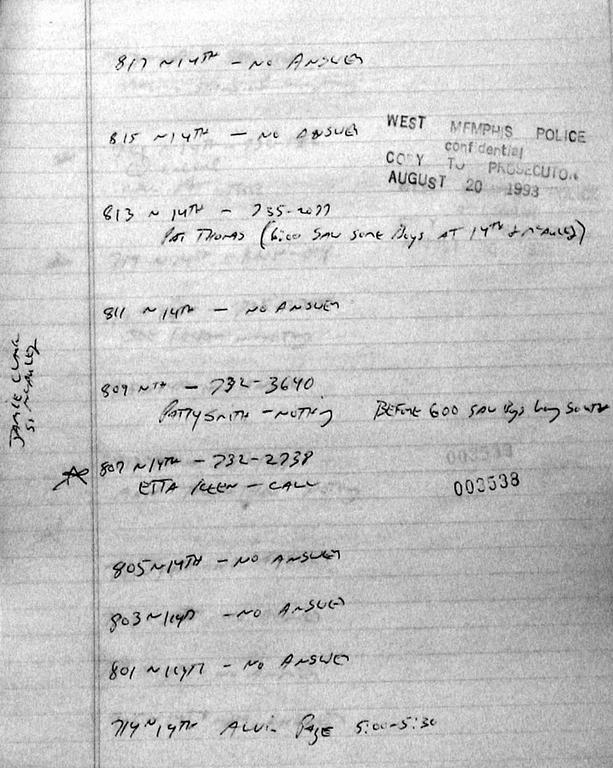 817 N 14TH - NO ANSWER
815 N 14TH - NO ANSWER
WEST MEMPHIS POLICE
confidential
COPY TO PROSECUTOR
AUGUST 20 1993
813 N 14TH - 735-2077
PAT THOMAS (6:00 SAW SOME Boys AT 14TH & McAuley)
811 N 14TH - NO ANSWER
809 NTH - 732-3640
PATTY SMITH - NOTHING BEFORE 600 SAW Boys going SOUTH
807 N 14TH - 732-2738
ETTA - CALL
003538
805 N 14TH - NO ANSWER
803 N 14TH - NO ANSWER
801 N 14TH - NO ANSWER
714 N 14TH ALVIN PAGE 5:00-5:30
JANICE
McAULEY